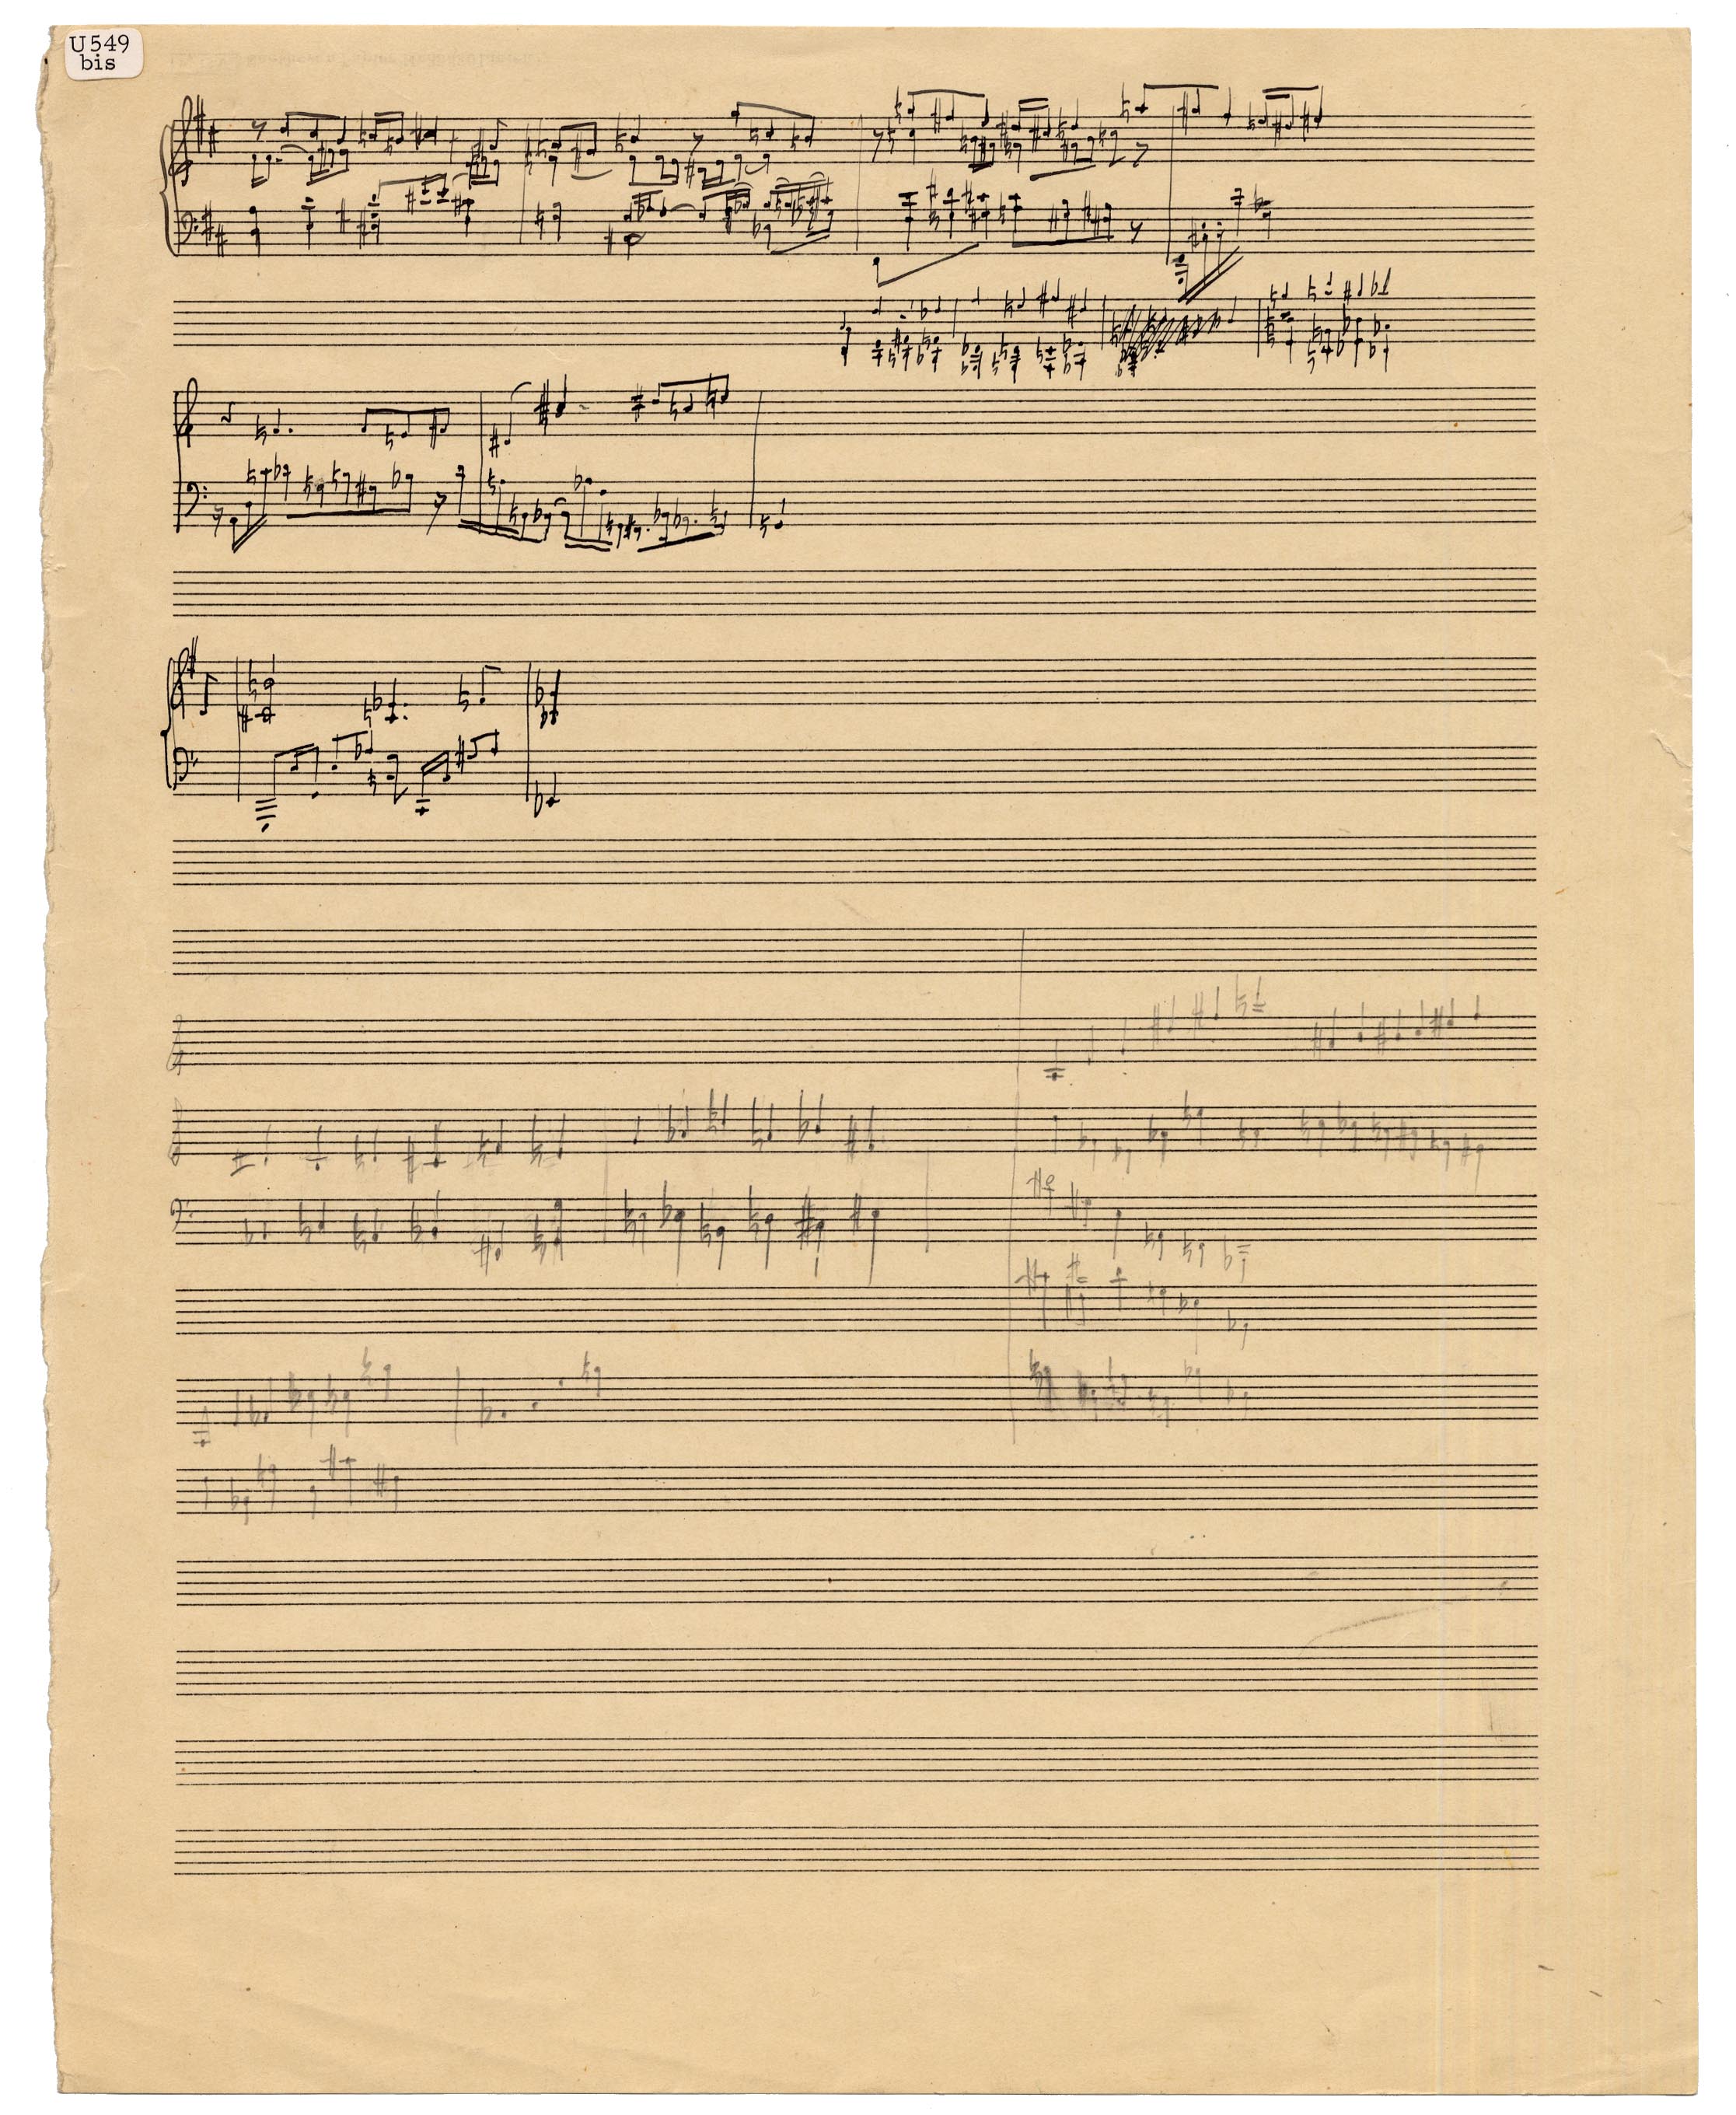 U549
bis